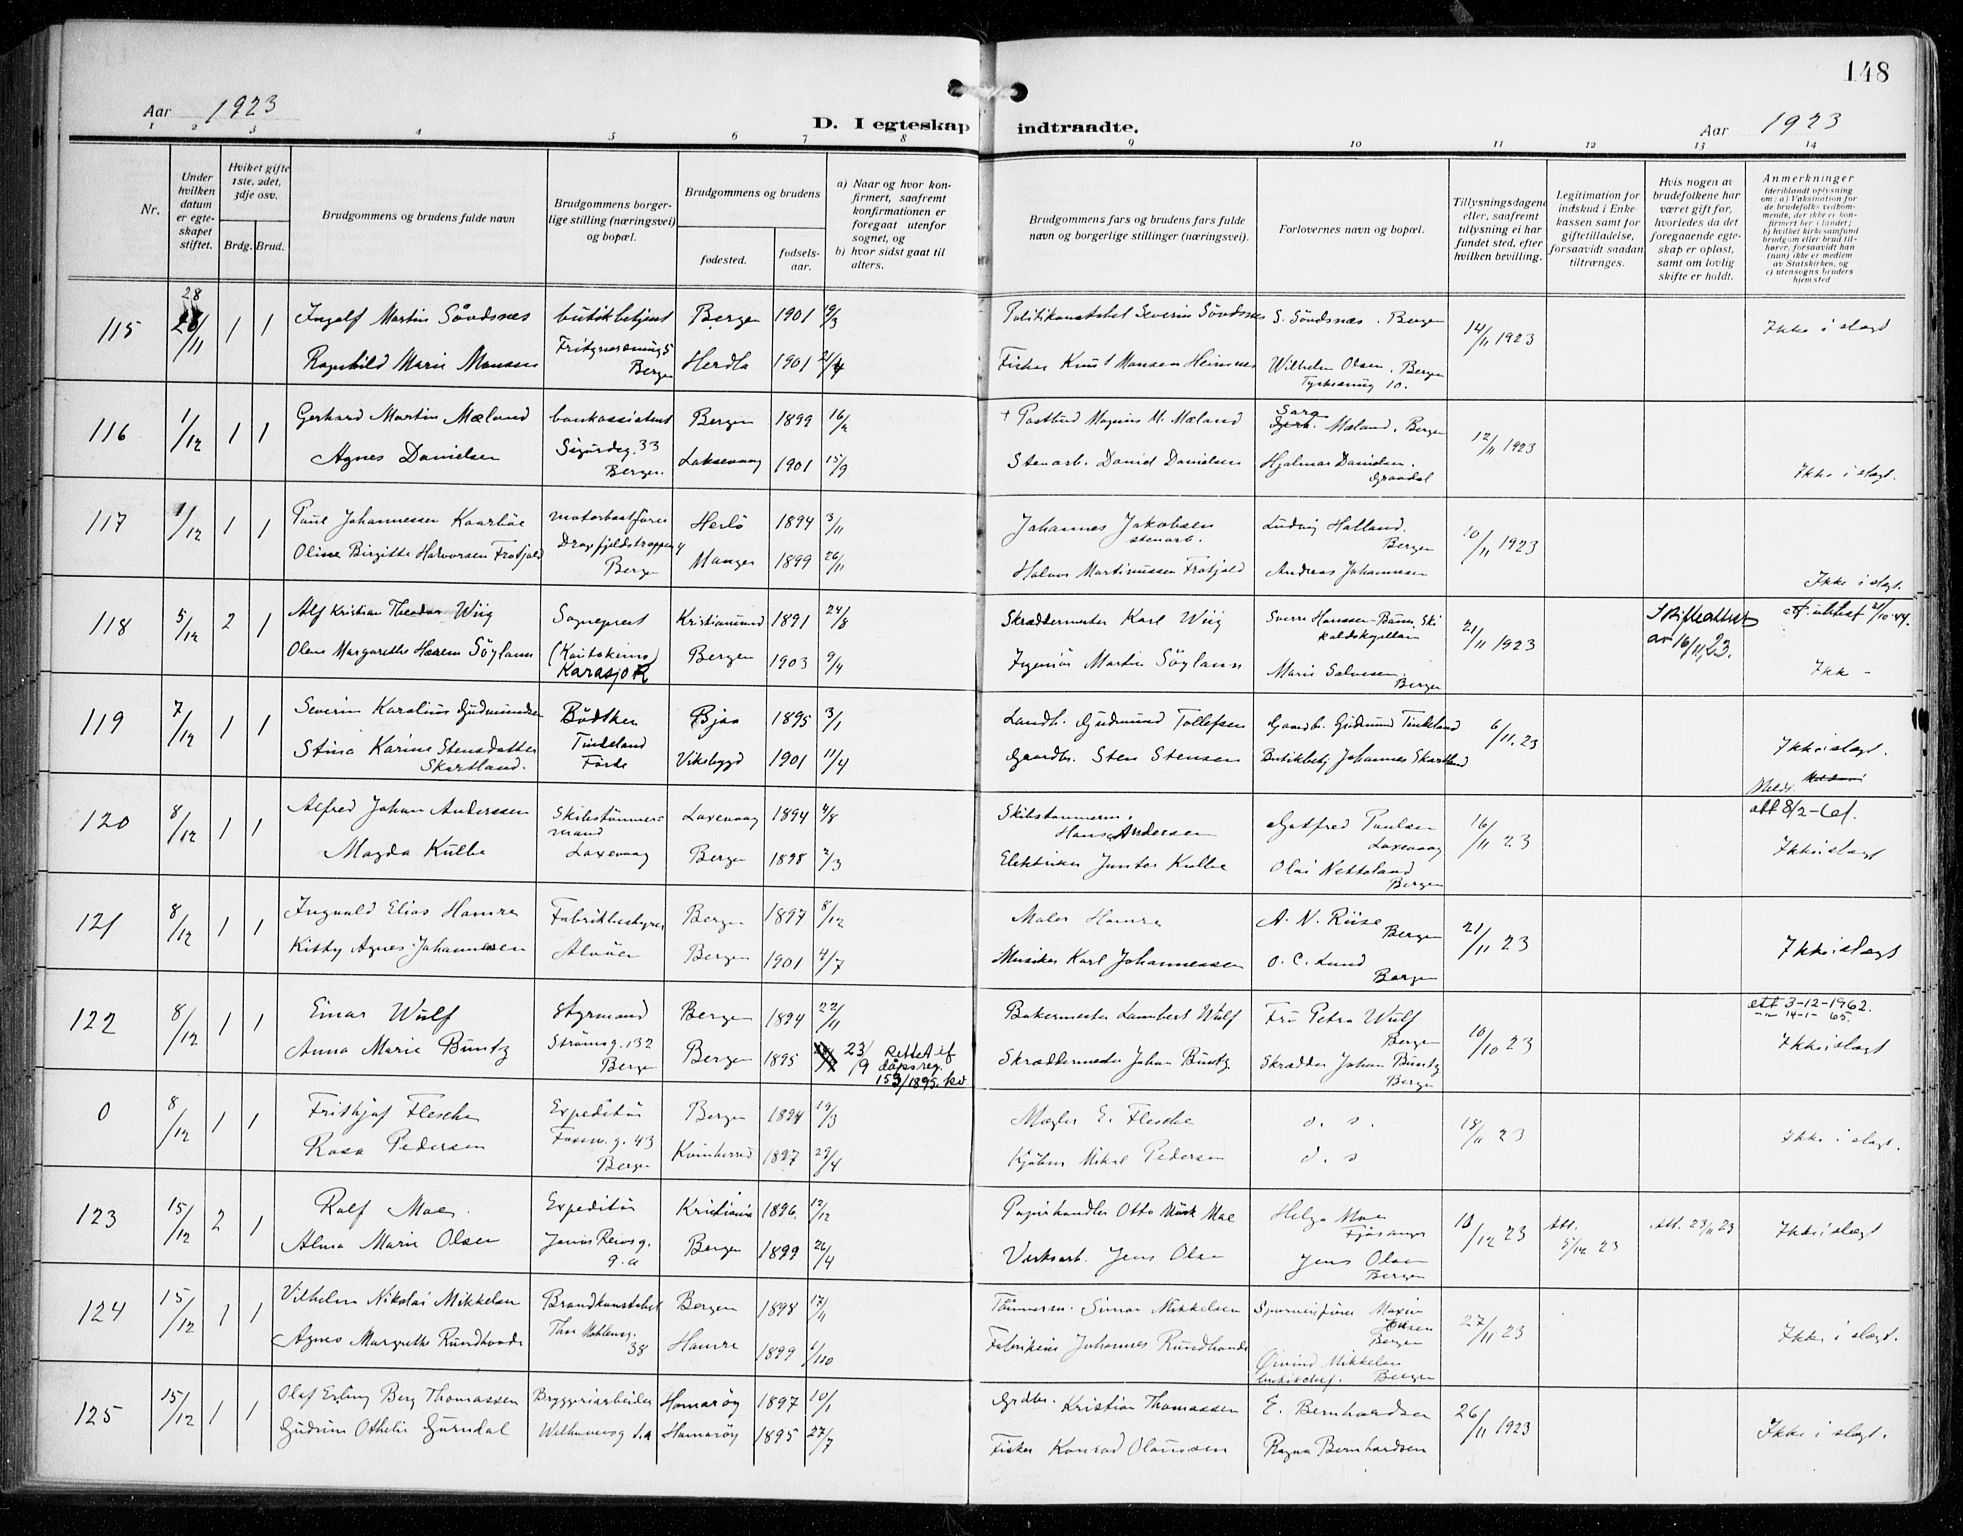 148
Aar 1923
D. I egteskap indtraadte.
Aar 1923
1 2 3 4 5 6 7 8 9 10 11 12 13 14
Nr.
Under hvilken datum er egteskapet stiftet.
Hvilket gifte 1ste, 2det, 3dje osv.
Brdg. Brud.
Brudgommens og brudens fulde navn
Brudgommens borgerlige stilling (næringsvei) og bopæl.
Brudgommens og brudens
fødested.
fødselsaar.
a) Naar og hvor konfirmert, saafremt konfirmationen er foregaat utenfor sognet, og
b) hvor sidst gaat til alters.
Brudgommens fars og brudens fars fulde navn og borgerlige stillinger (næringsvei).
Forlovernes navn og bopæl.
Tillysningsdagene eller, saafremt tillysning ei har fundet sted, efter hvilken bevilling.
Legitimation for indskud i Enkekassen samt for giftetilladelse, forsaavidt saadan tiltrænges.
Hvis nogen av brudefolkene har været gift før, hvorledes da det foregaaende egteskap er opløst, samt om lovlig skifte er holdt.
Anmerkninger (deriblandt oplysning om: a) Vaksination for de brudefolks vedkommende, der ikke er konfirmert her i landet; b) hvilket kirkesamfund brudgom eller brud tilhører, forsaavidt han (hun) ikke er medlem av Statskirken, og c) utensogns bruders hjemsted
115 28/11 1 1 Ingolf Martin Søvdsnes butikbetjent Bergen 1901 19/3 Politikonstabel Severin Søvdsnes S. Søvdsnes. Bergen 14/11 1923 Ikke i slægt
Ragnhild Marie Monsen Bergen Herdla 1901 Fisker Knut Monsen Wilhelm Olsen. Bergen
116 1/12 1 1 Gerhard Martin Mæland bankassistent Bergen 1899 16/2 + Postbud Magnus M. Mæland Sara Mæland. Bergen 12/11 1923
Agnes Danielsen Sigurdsg. 33 Bergen. Laksevaag 1901 15/9 Stenarb. David Danielsen Hjalmar Danielsen. Ikke i slægt.
117 1/12 1 1 Paul Johannessen motorbaatfører Herlø 1894 3/11 Johannes Jakobsen stenarb. Ludvig Halland. Bergen 10/11 1923
Oline Birgitte Halvorsen Frotjold Bergen Manger 1899 26/11 Halvor Martinussen Frotjold Andreas Johannesen Ikke i slægt.
118 5/12 2 1 Alf Kristian Theodor Wiig Sogneprest Kristiansund 1891 24/8 Skræddermester Karl Wiig 21/11 1923 Skifteattest av 16/11, 23.
Olene Margarethe Søyland (Kautokeino) Karasjok Bergen 1903 9/4 Ingeniør Martin Søyland Marie Salvesen. Bergen Ikke -
119 7/12 1 1 Severin Karolius Gudmundsen Bødtker Bjoa 1895 3/1 Landb. Gudmund Tollefsen Gaardb. Gudmund Tinkeland 6/11. 23
Stina Karine Stensdatter Skartland. Tinkeland Førde Vikebygd 1901 11/4 Gaardbr. Sten Stensen Butikbetj Johannes Skartland Ikke i slægt.
120 8/12 1 1 Alfred Johan Anderssen Skibstømmermand Laxevaag 1894 4/8 Skibstømmerm. Hans Andersen Gotfred Paulsen Laxevaag 16/11 23 att 8/2-61.
Magda Kulbe Laxevaag Bergen 1898 2/3 Elektriker Kulbe Olai Netteland Bergen Ikke i slægt
121 8/12 1 1 Ingvald Elias Hamre Fabrikbestyrer Bergen 1897 8/12 Maler Hamre A. N. Riise Bergen 21/11 23
Kitty Agnes Johannessen Alvøen Bergen 1901 4/7 Musiker Karl Johannessen O. C. Lund Bergen Ikke i slægt
122 8/12 1 1 Einar Wulf Styrmand Bergen 1894 22/11 Bakermester Lambert Wulf Fru Petra Wulf Bergen 10/10 23 att 3-12-1962. -"- 14-1- 65.
Anna Marie Buntz Strømsg. 132 Bergen Bergen 1895 23/9 Rettet if dåpsreg. 153/1895. Skræddermester Johan Buntz Skrædder Johan Buntz Bergen Ikke i slægt
0 8/12 1 1 Frithjof Flesche Expeditør Bergen 1894 19/3 Mægler E. Flesche d. s. 18/11 23
Rosa Pedersen g. 43 Bergen Kvinherred 1897 29/4 Kjøbm Mikal Pedersen d. s Ikke i slægt.
123 15/12 2 1 Rolf Moe. Expeditør Kristiania 1896. 12/12 Papirhandler Otto Moe Helga Moe Fjøsanger 10/12 23 Att. 5/12 23 Att. 23/11 23 Ikke i slægt
Alma Marie Olsen Jonas Reinsg. 9. a Bergen 1899 26/4 Værksarb. Jens Olsen Jens Olsen Bergen
124 15/12 1 1 Vilhelm Nikolai Mikkelsen Brandkonstabel Bergen 1898 17/11 Tømmerm. Simon Mikkelsen Bergen 27/11 23
Agnes Margrethe Rundhovde Thor Møhlensg. 38 Hamre 1899 Johannes Rundhovde Øivind Mikkelsen Bergen Ikke i slægt.
125 15/12 1 1 Olaf Erling Berg Thomassen Bryggeriarbeider Hamarøy 1897 10/1 Grdbr. Kristian Thomassen E. Bernhardsen 26/11 1923
Gudrun Othelie Hamarøy 1895 27/7 Fisker Konrad Olaussen Ragna Bernhardsen Ikke i slægt.